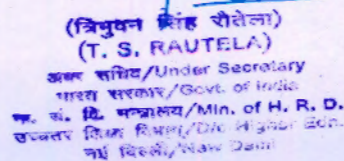 (त्रिभुवन सिंह रौतेला)
(T. S. RAUTELA)
अवर सचिव/Under Secretary
भारत सरकार/Govt. of India
मा. सं. वि. मन्त्रालय/Min. of H. R. D.
उच्चतर शिक्षा विभाग/D/o Higher Edn.
नई दिल्ली/New Delhi